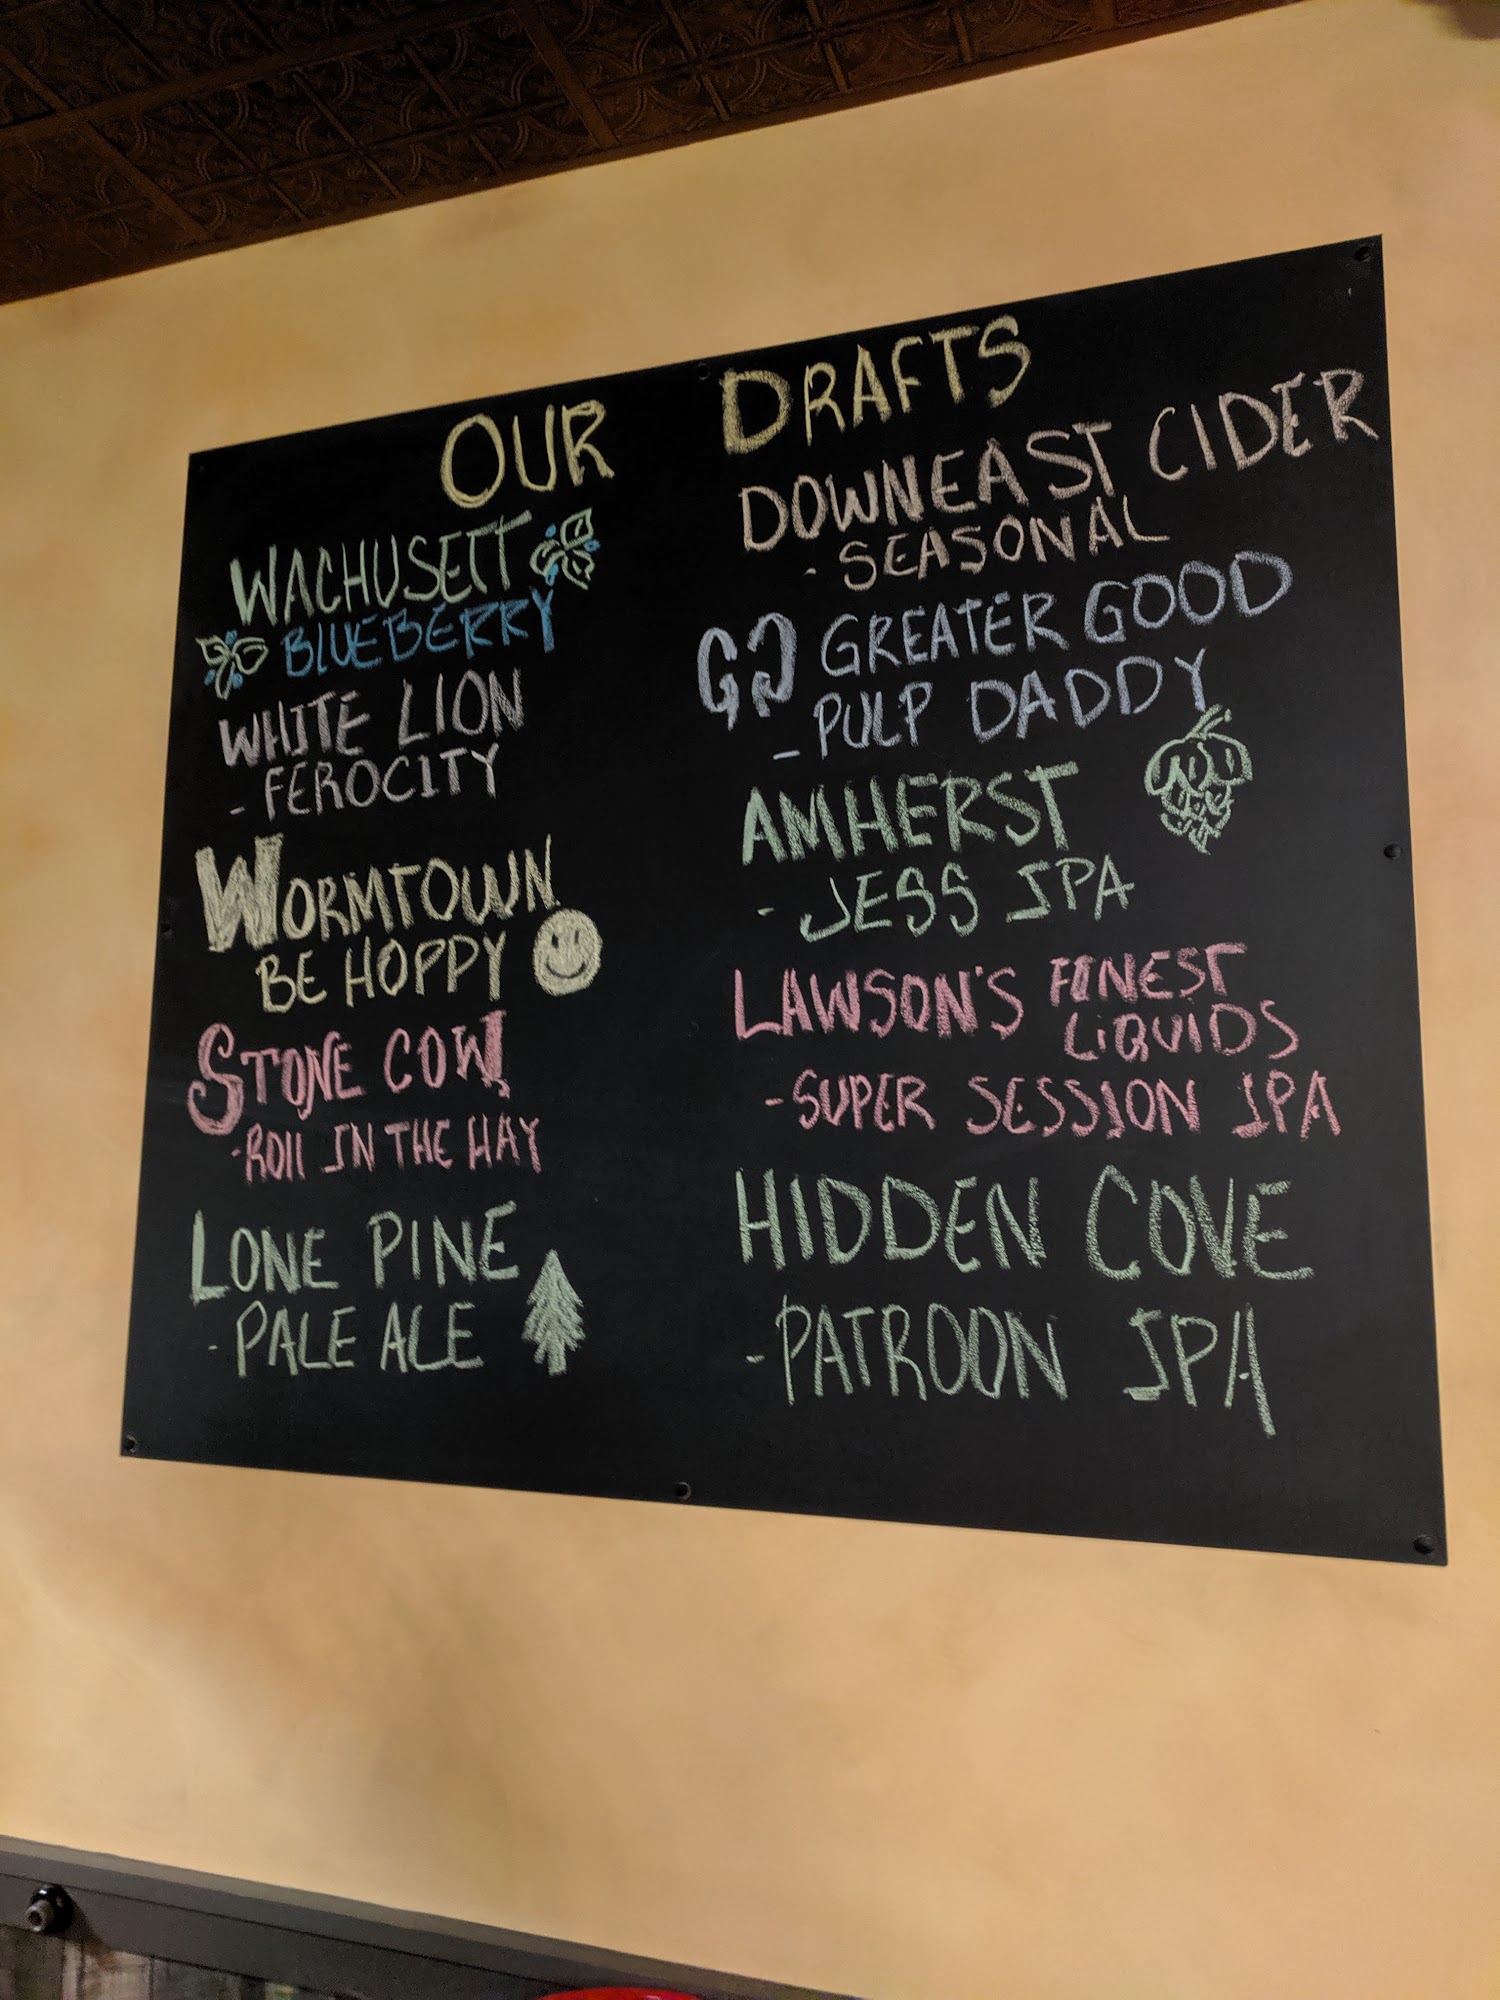 OUR DRAFTS
WACHUSETT
BLUEBERRY
WHITE LION
- FEROCITY
WORMTOWN
BE HOPPY
STONE COW
- ROll IN THE HAY
LONE PINE
- PALE ALE
DOWNEAST CIDER
- SEASONAL
GG GREATER GOOD
- PULP DADDY
AMHERST
- JESS IPA
LAWSON'S FINEST
LiQUIDS
- SUPER SESSION IPA
HIDDEN COVE
- PATROON IPA